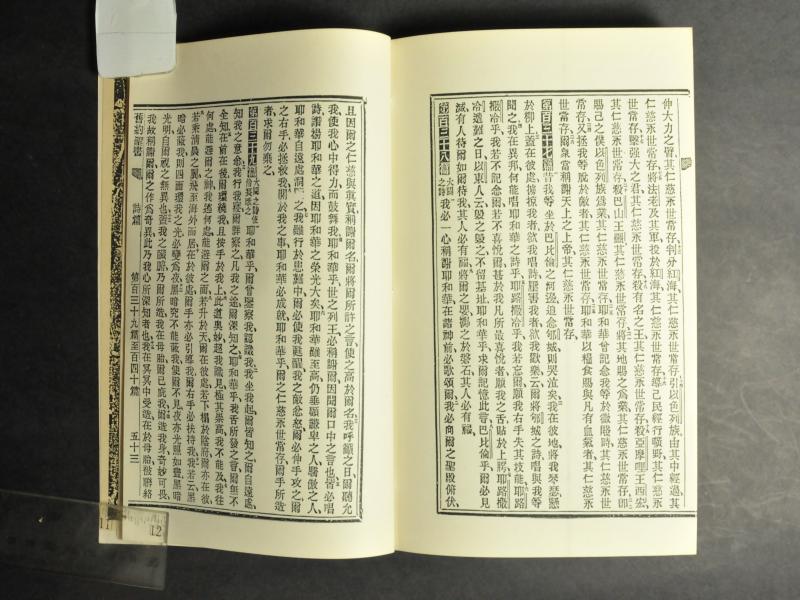 伸大力之臂其仁慈永世常存判分紅海其仁慈永世常存引以色列族由其中經過其
仁慈永世常存將法老及其軍投於紅海其仁慈永世常存導己民經行曠野其仁慈永
世常存擊強大之君其仁慈永世常存殺有名之王其仁慈永世常存殺亞摩哩王西宏
其仁慈永世常存殺巴山王噩其仁慈永世常存將其地賜之爲業其仁慈永世常存卽
賜己之僕以色列族爲業其仁慈永世常存耶和華曾記念我等於微賤時其仁慈永世
常存又拯我等脫於敵者其仁慈永世常存耶和華以糧食賜與凡有血氣者其仁慈永
世常存爾衆當稱謝天上之上帝其仁慈永世常存
第百三十七篇 昔我等坐於巴比倫之河邊追念郇城則哭泣矣我在彼地將我琴瑟懸
於柳上蓋在彼處擄掠我者欲我唱詩壓害我者欲我歡樂云爾將郇城之詩唱與我等
聞之我在異邦何能唱耶和華之詩乎耶路撒冷乎我若忘爾願我右手失其技能耶路
撒冷乎我若不記念爾若不喜悅爾甚於我凡所最喜悅者願我之舌貼於上膀耶路撒
冷遭難之日以東人云毀之毀之不留基址耶和華乎求爾記憶此言巴比倫乎爾必見
滅有人待爾如爾待我其人必有福將爾之嬰孩擲之於磐石其人必有福
第百三十八篇 大闢之詩 我必一心稱謝耶和華在諸神前必歌頌爾我必向爾之聖殿俯伏
且因爾之仁慈與眞實稱謝爾名爾將爾所許之言使之高於爾名我呼籲之日爾聽允
我使我心中得力而鼓舞我耶和華乎世之列王必稱謝爾因聞爾口中之言也皆必唱
詩讚揚耶和華之道因耶和華之榮光大矣耶和華雖至高仍垂顧謙卑之人驕傲之人
耶和華自遠處洞 之我雖行於患難中爾必使我甦醒我之敵忿怒爾必伸手攻之爾
之右手必拯救我關於我之事耶和華必成就耶和華乎爾之仁慈永世常存爾手所造
者求爾勿棄之
第百三十九篇 大闢之詩使伶長歌之 耶和華乎爾曾鑒察我認識我我坐我起爾皆知之爾自遠處
知我之意念我行我寢爾詳察之凡我之途爾深知之耶和華乎我舌所發之言爾無不
全知在前在後爾環繞我且按手於我上此道奧妙超我識見極其崇高我不能及我往
何處能避爾之神我逃何處能避爾之面若升於天爾在彼處若下榻於陰府爾亦在彼
若乘淸晨之翼飛至海外而居在於彼處爾手亦必引導我爾右手必扶持我我若云黑
暗必蔽我則四面環我之光必變爲夜黑暗究不能蔽我使爾不見夜亦光照如晝黑暗
光明自爾視之無異也蓋我之臟腑乃爾所造我在母胎爾已庇我爾造我身奇妙可畏
我故稱謝爾爾之作爲奇異此乃我心所深知者也我在冥冥中受造在於母胎被聯絡
舊約聖書 詩篇 第百三十九篇至百四十篇 五十三
11 12